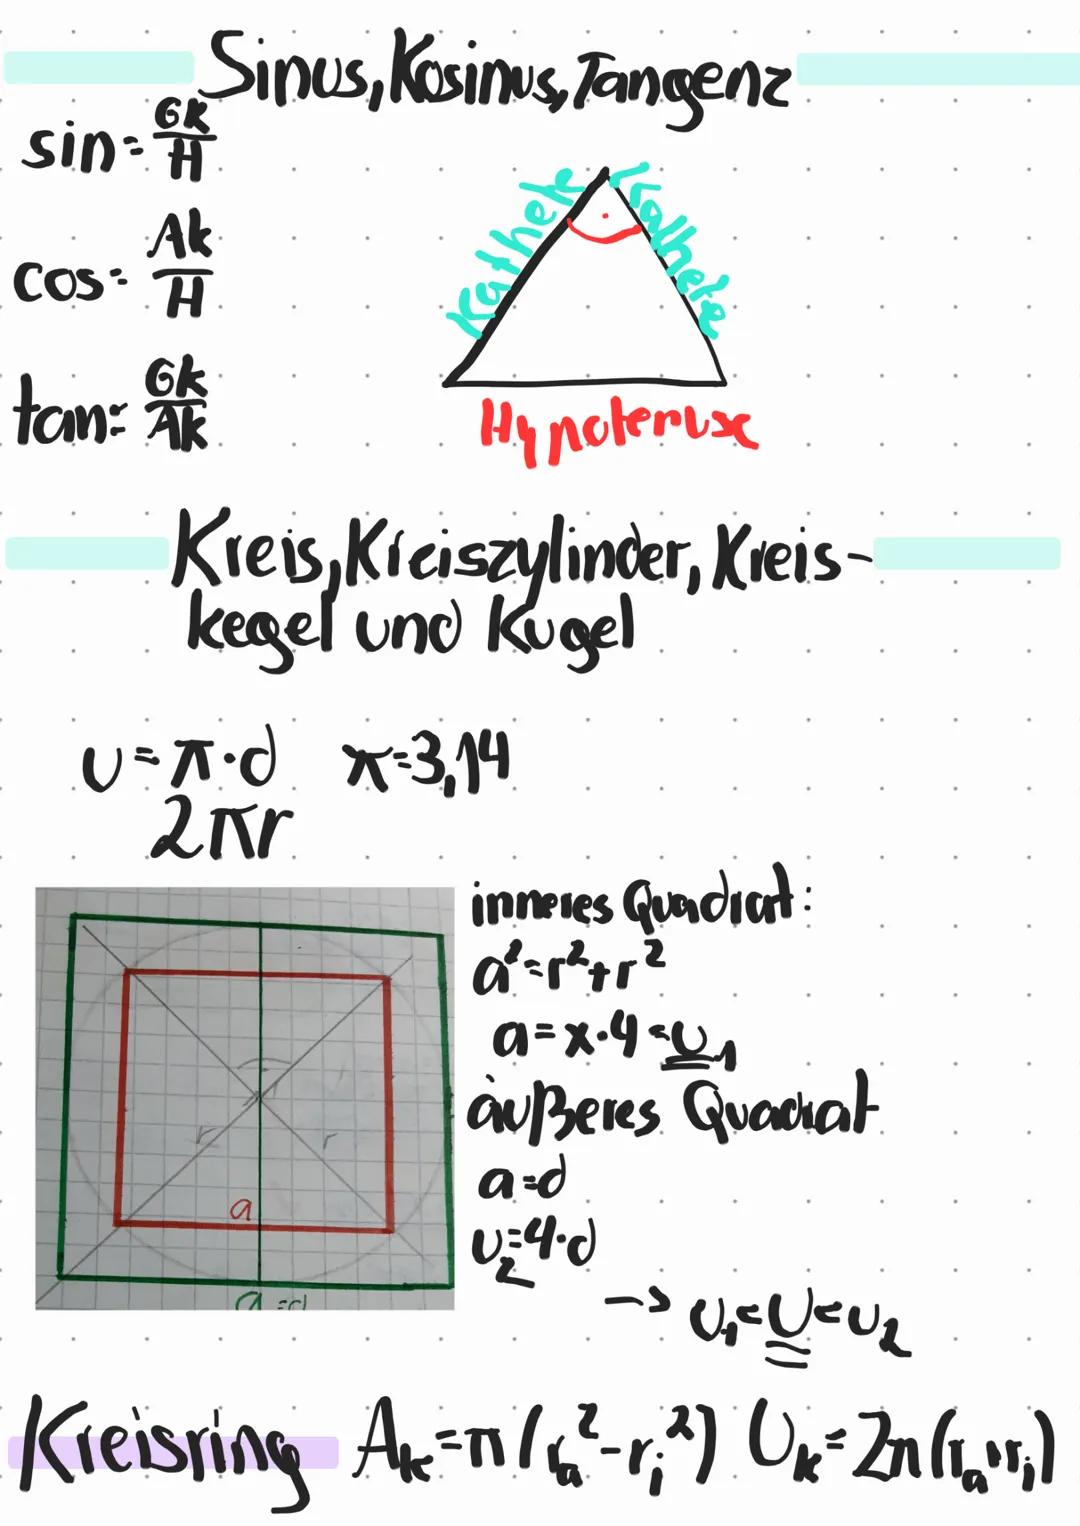 Sinus, Kosinus, Tangenz
sin = Gk/H
cos = Ak/H
tan = Gk/Ak
Kathete
Kathete
Hypotenuse
Kreis, Kreiszylinder, Kreis-
kegel und Kugel
U = π·d π=3,14
2πr
inneres Quadrat:
a² = r² + r²
a = x·4 = U₁
äußeres Quadrat
a = d
U₂ = 4·d
-> U₁ < U < U₂
r
r
a
a = d
Kreisring Aₖ = π(rₐ² - rᵢ²) Uₖ = 2π(rₐ+rᵢ)